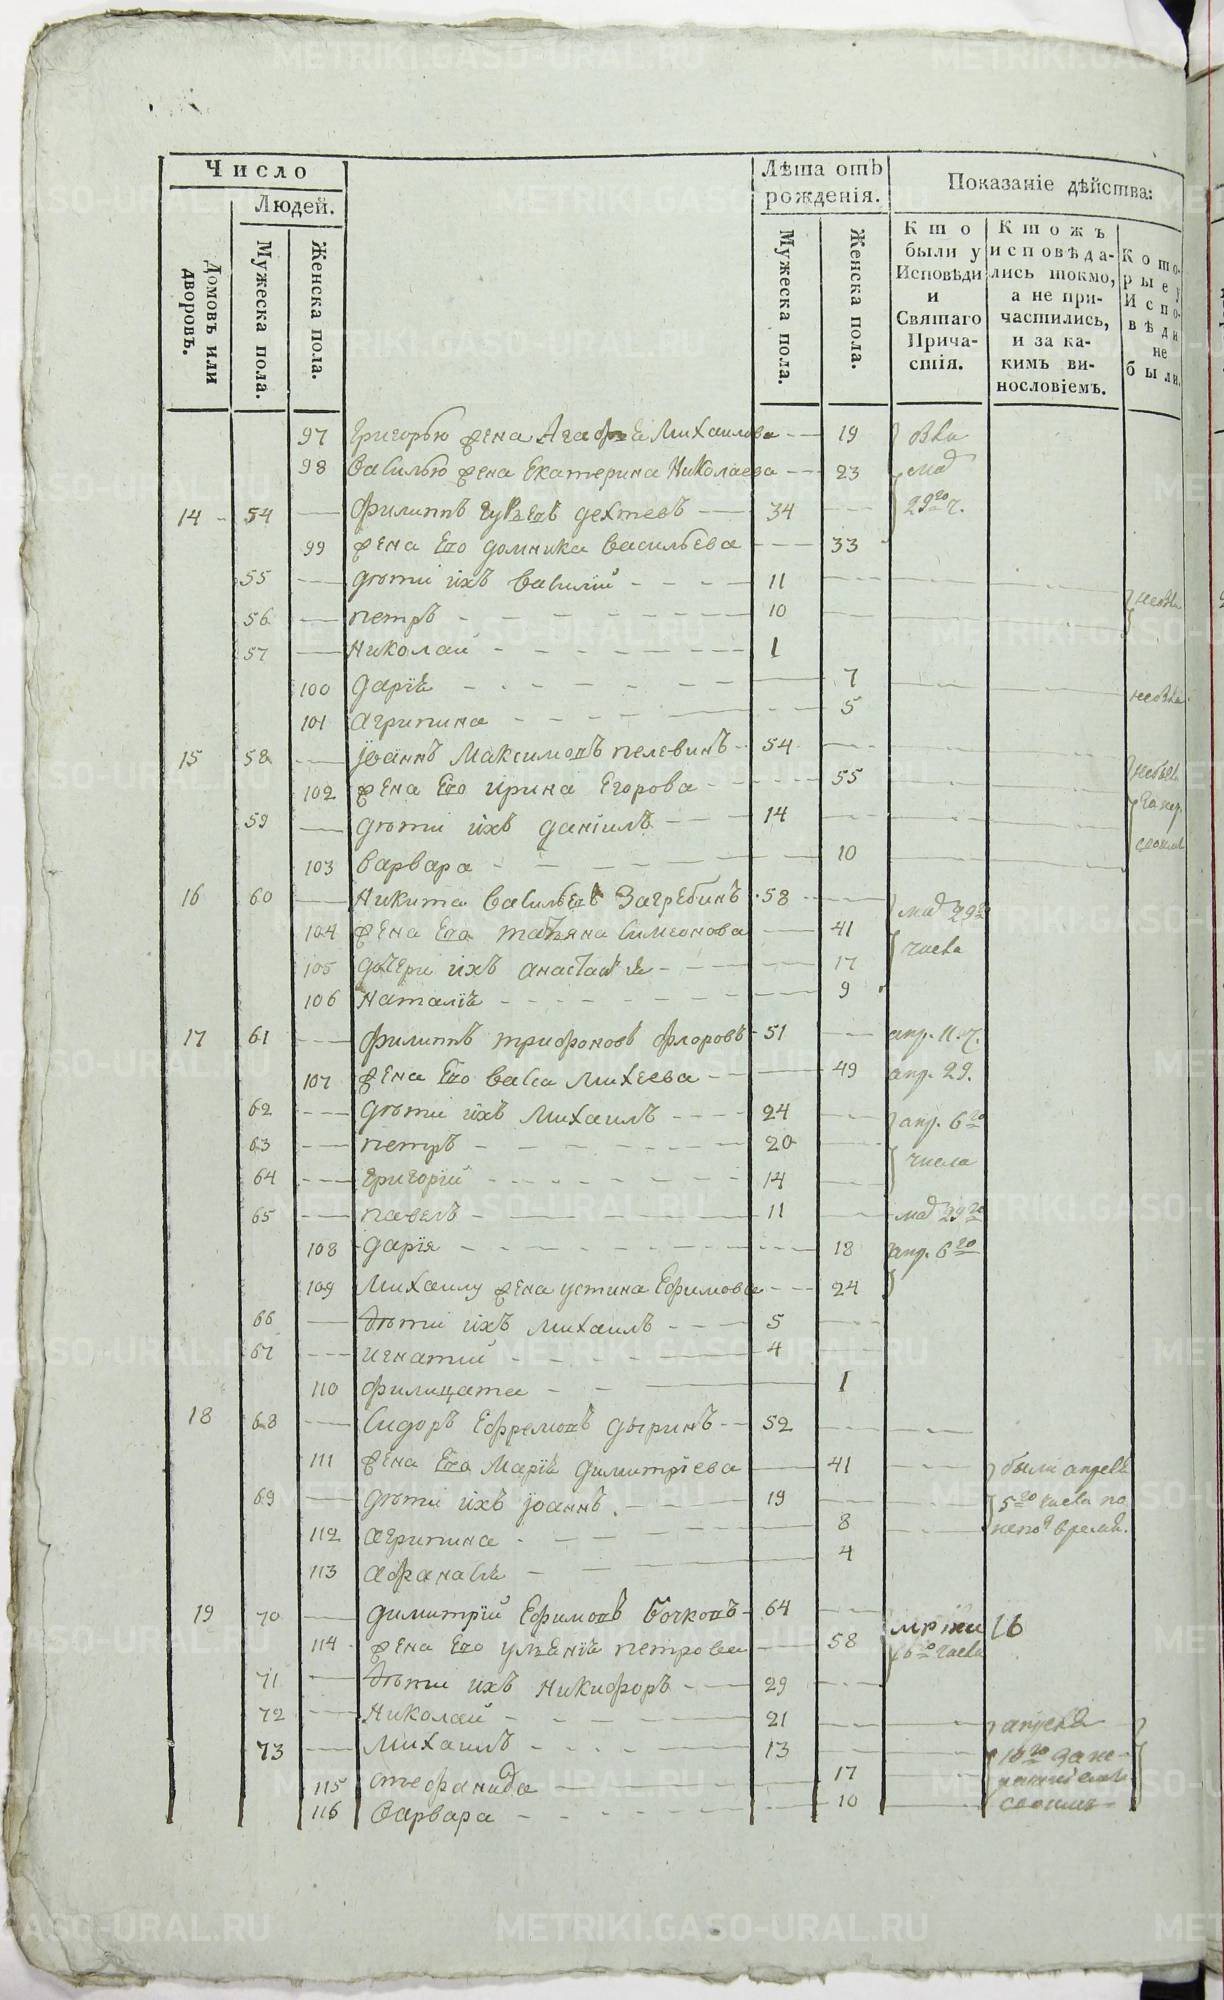 Число
Людей.
Домовъ или дворовъ.
Мужеска пола.
Женска пола.
Лѣта отъ рожденія.
Мужеска пола.
Женска пола.
Показаніе дѣйства:
Кто были у Исповѣди и Святаго Причастія.
Ктожъ исповѣдались токмо, а не причастились, и за какимъ винословіемъ.
Которые у Исповѣди не были.
97 Григорью жена Агафіа Михаилова 19
98 Василью жена Екатерина Николаева 23 маѣ
14 54 Филиппъ Гурьевъ Дехтевъ 34 29го ч.
99 жена Его Домника Васильева 33
55 дѣти ихъ Василий 11
56 петръ 10
57 Николай 1
100 дарїѣ 7
101 агрипина 5
15 58 їоаннъ Максимовъ пелевинъ 54
102 жена Его ирина Егорова 55
59 дѣти ихъ данїилъ 14
103 варвара 10
16 60 Никита Васильевъ Загребинъ 58 маѣ 29го
104 жена Его татьяна Симеонова 41 числа
105 дочери ихъ анастасїѣ 17
106 наталїѣ 9
17 61 филиппъ трифоновъ флоровъ 51 апр. 11. ч.
107 жена Его васса Михеева 49 апр. 29.
62 дѣти ихъ Михаилъ 24 апр. 6го
63 петръ 20 числа
64 григорїй 14
65 павелъ 11 маѣ 29го
108 дарїя 18 апр. 6го
109 Михаилу жена устина Ефимова 24
66 дѣти ихъ михаилъ 5
67 игнатий 4
110 филицата 1
18 68 Сидоръ Ефремовъ дыринъ 52
111 жена Его Марїѣ димитрїева 41 были апрелѣ
69 дѣти ихъ їоаннъ 19 5го числа по
112 агрипина 8
113 афанасїѣ 4
19 70 димитрїй Ефимовъ Бочковъ 64
114 жена Его ульянїѣ петрова 58 16
71 дѣти ихъ Никифоръ 29
72 Николай 21 апрелѣ
73 михаилъ 13
115 стефанида 17
116 варвара 10
METRIKI.GASO-URAL.RU